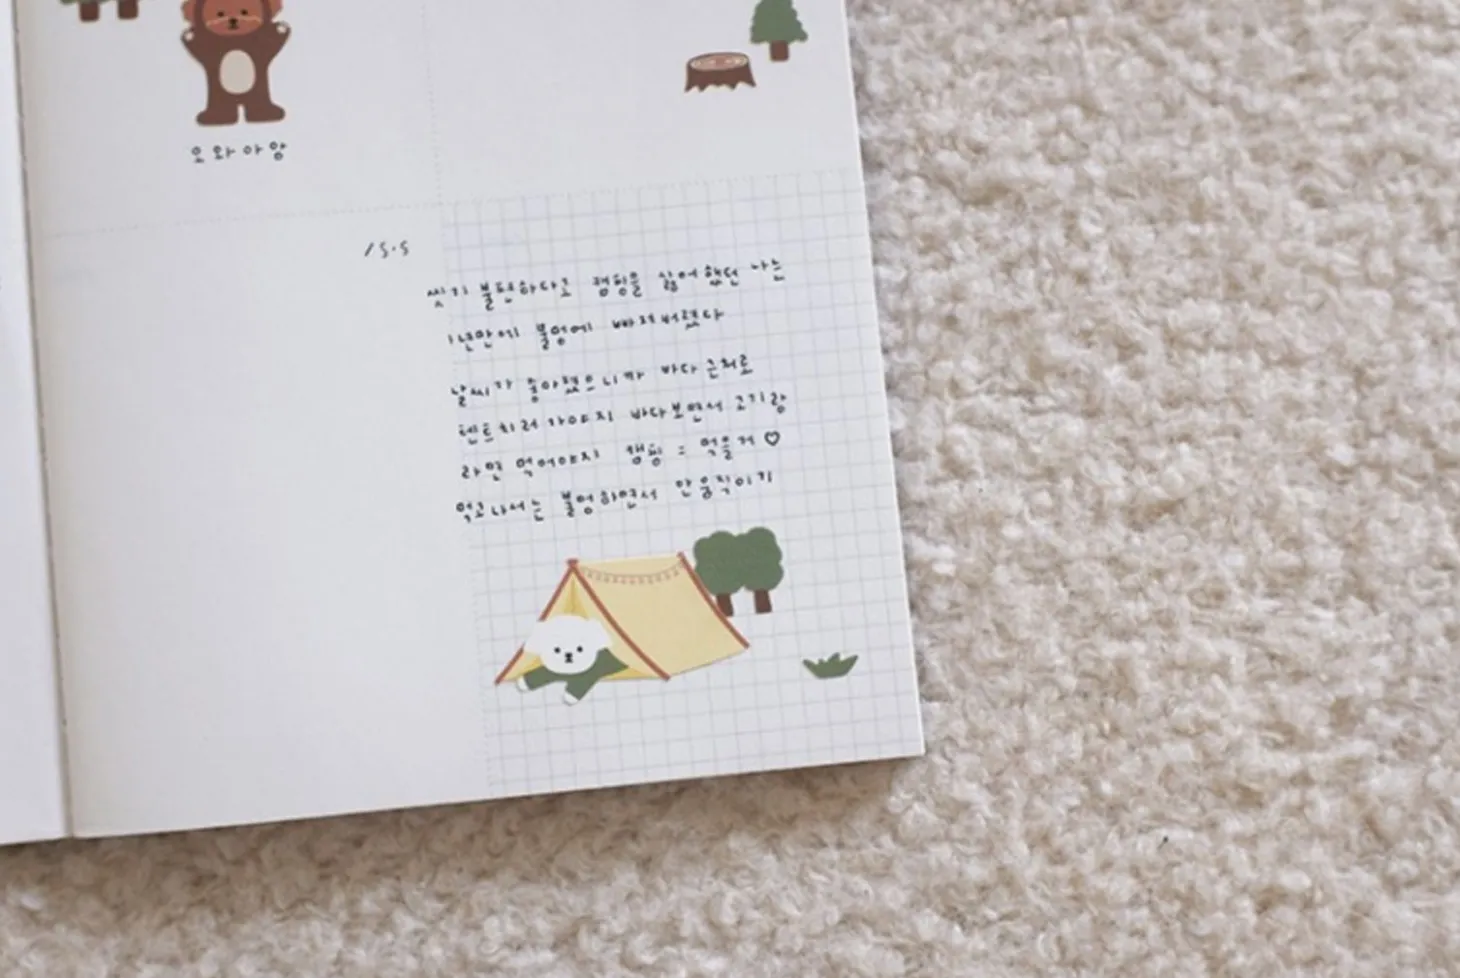 오와아앙
15.5
씻기 불편하다고 캠핑을 싫어했던 나는
1년만에 불멍에 빠져버렸다
날씨가 좋아졌으니까 바다 근처로
텐트치러 가야지 바다보면서 고기랑
라면 먹어야지 캠핑 = 먹을거♡
먹고나서는 불멍하면서 안움직이기